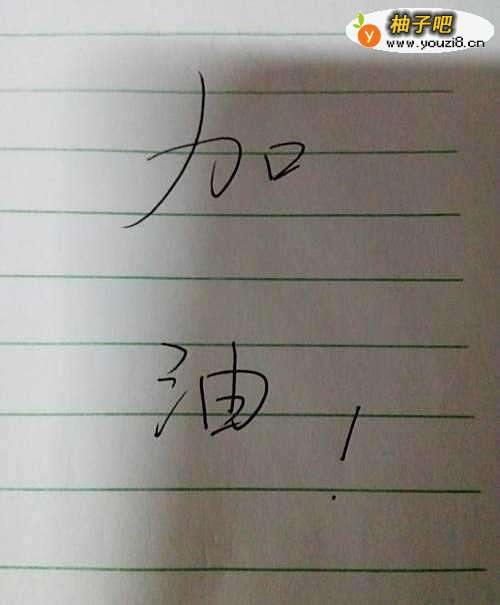 柚子吧
www.youzi8.cn
加
油!